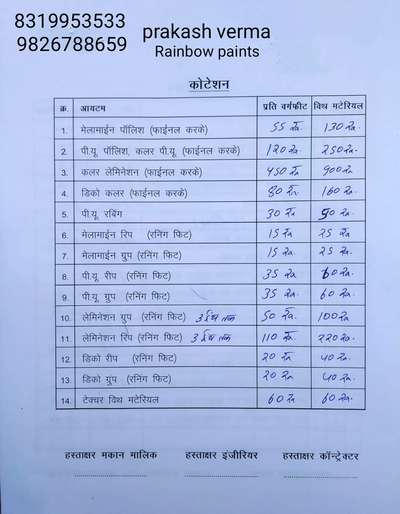 8319953533
9826788659
prakash verma
Rainbow paints
कोटेशन
क्र. आयटम प्रति वर्गफीट विथ मटेरियल
1. मेलामाईन पॉलिश (फाईनल करके) 55 रू. 130 रू.
2. पी.यू. पॉलिश, कलर पी.यू. (फाईनल करके) 120 रू. 250 रू.
3. कलर लेमिनेशन (फाईनल करके) 450 रू. 900 रू.
4. डिको कलर (फाईनल करके) 80 रू. 160 रू.
5. पी.यू रबिंग 30 रू 90 रू.
6. मेलामाईन रिप (रनिंग फिट) 15 रू 25 रू
7. मेलामाईन ग्रुप (रनिंग फिट) 15 रू 25 रू
8. पी.यू रीप (रनिंग फिट) 35 रू 60 रू.
9. पी.यू ग्रुप (रनिंग फिट) 35 रू. 60 रू.
10. लेमिनेशन ग्रुप (रनिंग फिट) 3 इंच तक 50 रू. 100 रू
11. लेमिनेशन रिप (रनिंग फिट) 3 इंच तक 110 रू. 220 रू.
12. डिको रीप (रनिंग फिट) 20 रू 40 रू.
13. डिको ग्रुप (रनिंग फिट) 20 रू 40 रू.
14. टेक्चर विथ मटेरियल 60 रू 60 रू.
हस्ताक्षर मकान मालिक हस्ताक्षर इंजीरियर हस्ताक्षर कॉन्ट्रेक्टर